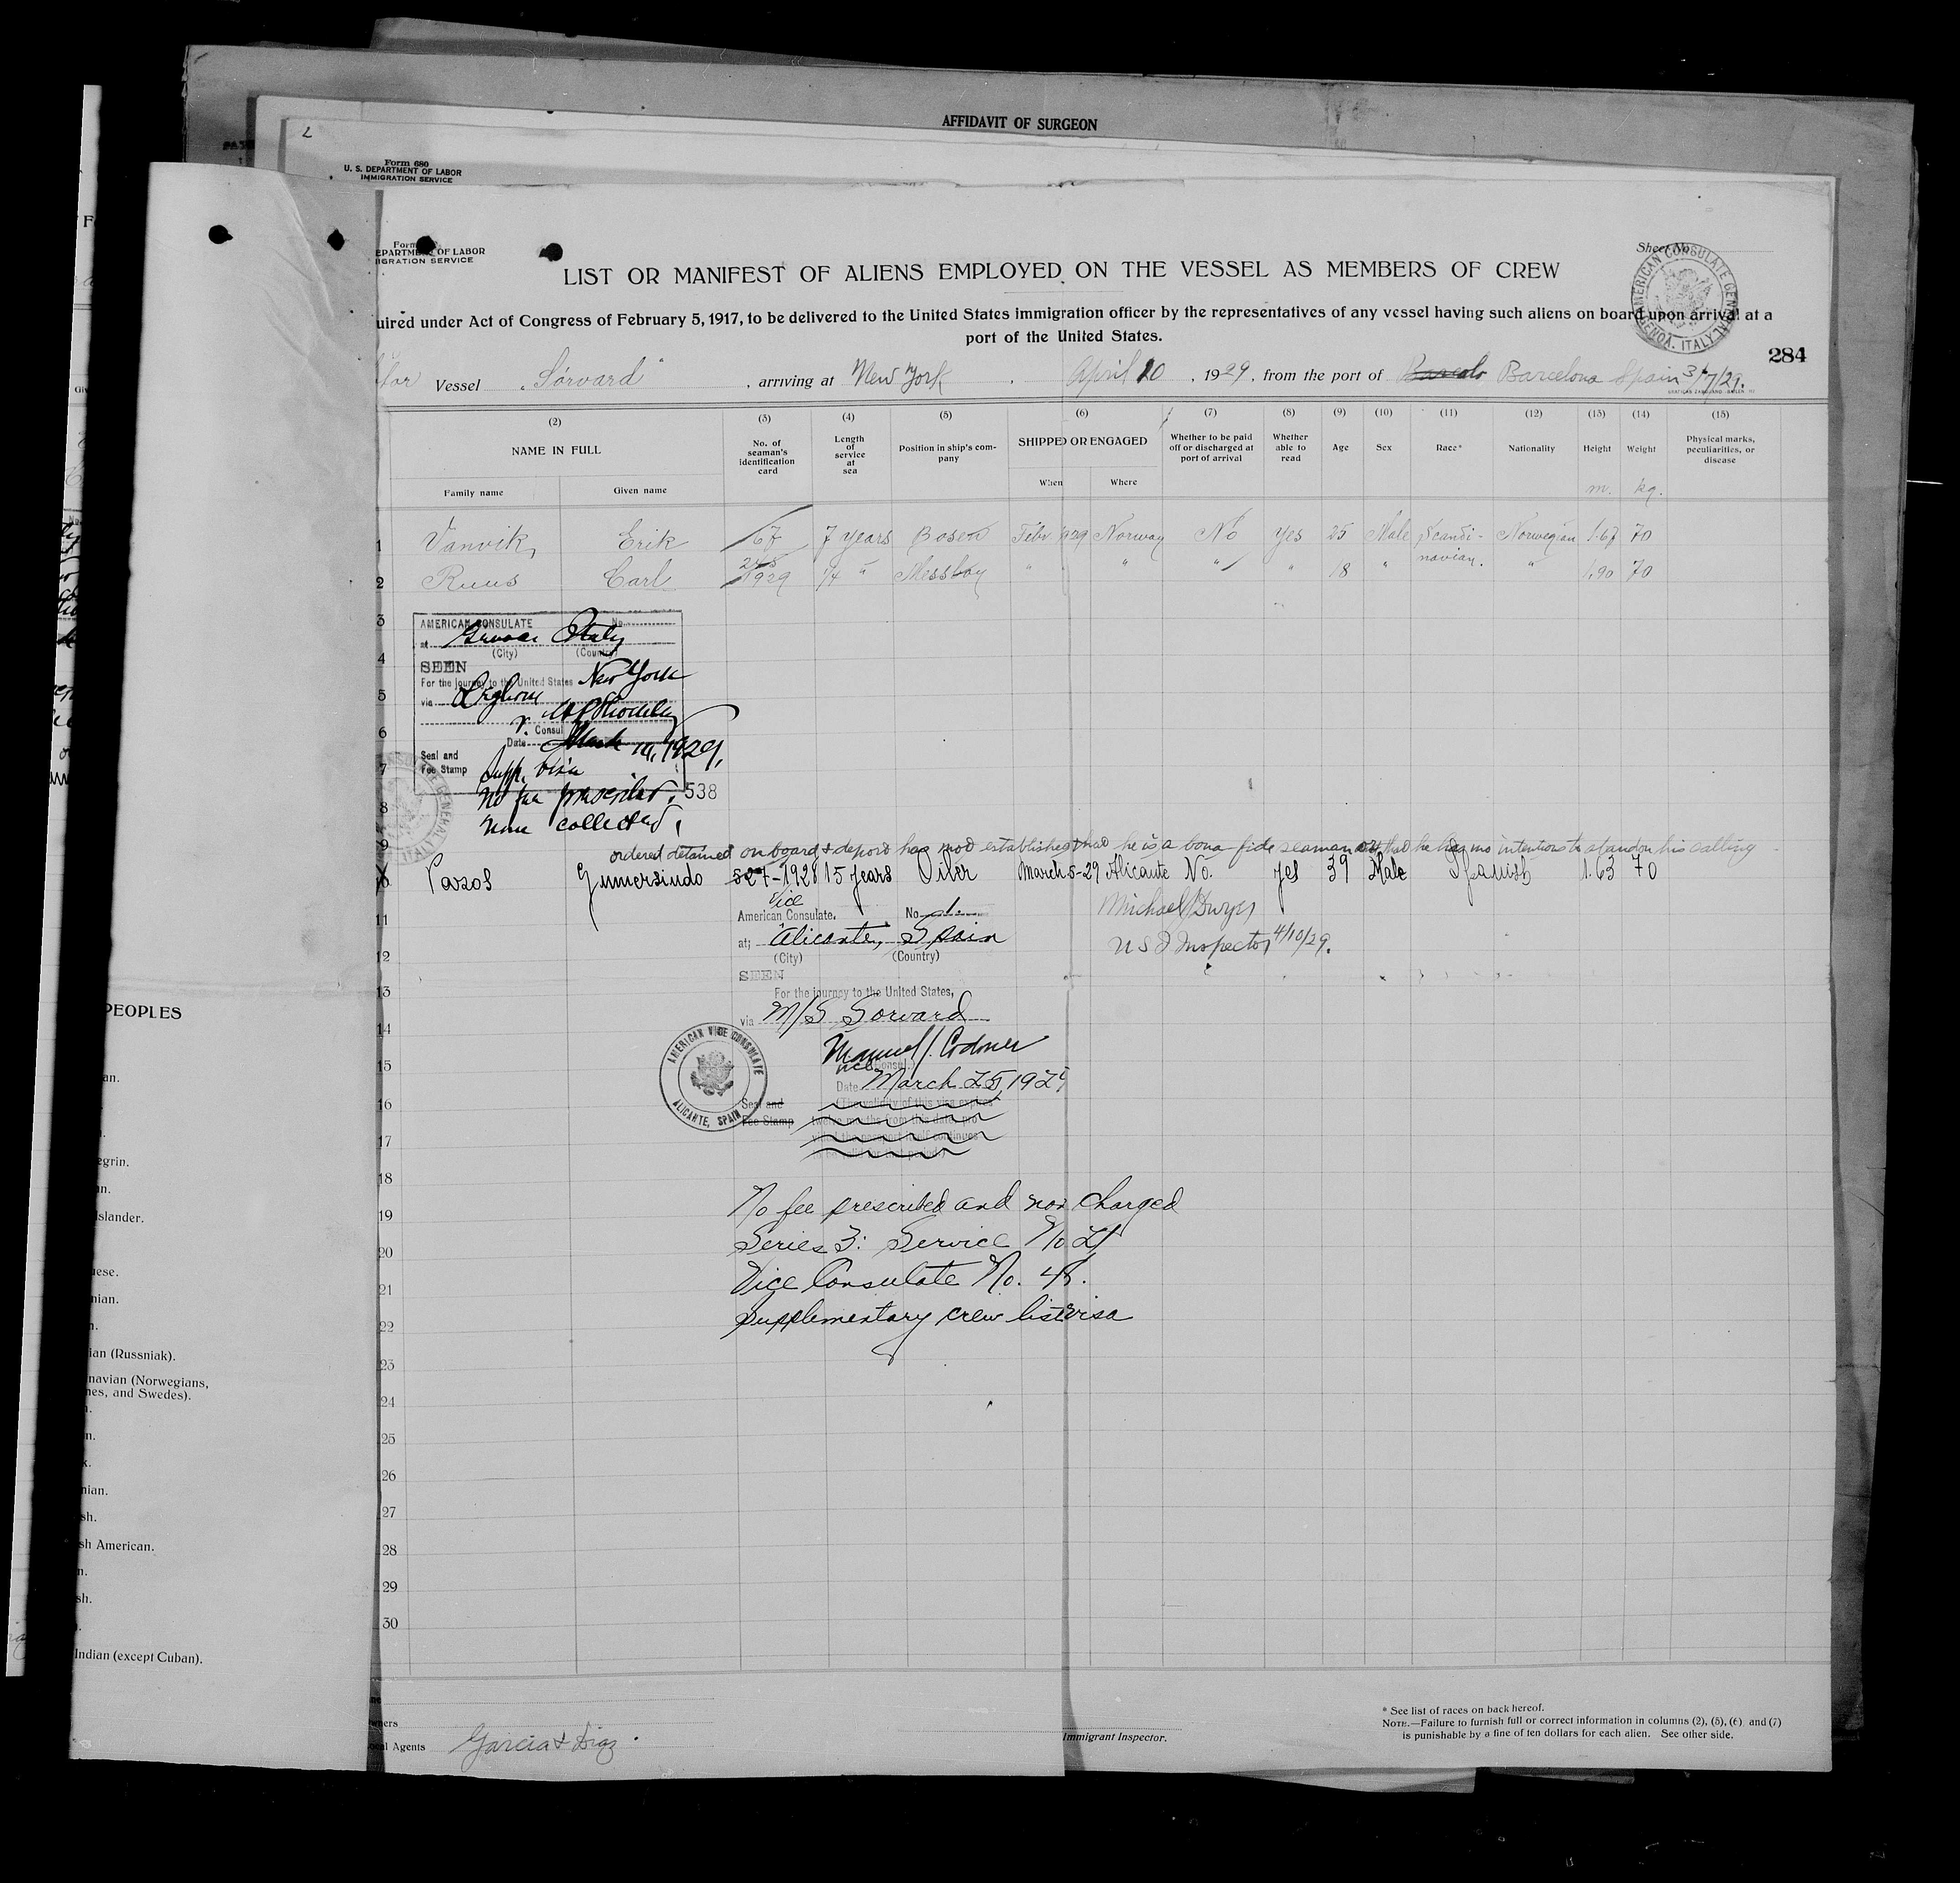 AFFIDAVIT OF SURGEON
Form 680
U. S. DEPARTMENT OF LABOR
IMMIGRATION SERVICE
Form
EPARTMENT OF LABOR
IGRATION SERVICE
Sheet No.
LIST OR MANIFEST OF ALIENS EMPLOYED ON THE VESSEL AS MEMBERS OF CREW
AMERICAN CONSULATE GENERAL GENOA, ITALY
uired under Act of Congress of February 5, 1917, to be delivered to the United States immigration officer by the representatives of any vessel having such aliens on board upon arrival at a
port of the United States.
284
Vessel "Sorvard", arriving at New York, April 10, 1929, from the port of Barcelona Spain 3/7/29.
(2) (3) (4) (5) (6) (7) (8) (9) (10) (11) (12) (13) (14) (15)
NAME IN FULL
Family name
Given name
No. of seaman's identification card
Length of service at sea
Position in ship's company
SHIPPED OR ENGAGED
When
Where
Whether to be paid off or discharged at port of arrival
Whether able to read
Age
Sex
Race*
Nationality
Height
m.
Weight
kg.
Physical marks, peculiarities, or disease
1 Vanvik, Erik 67 7 years Bosen Febr 1929 Norway No Yes 25 Male Scandinavian. Norwegian 1.67 70
2 Ruus Carl 1929 1/4 " Messboy " " " " 18 " " 1.90 70
3
AMERICAN CONSULATE No.
at Genoa Italy
(City) (Country)
4
SEEN
For the journey to the United States New York
5
via Leghorn
6
Consul
Date March 1929.
7
Seal and
Fee Stamp
Supp. visa
No fee prescribed, 538
8
none collected,
9
ordered detained on board & deport has not established that he is a bona fide seaman or that he has no intentions to abandon his calling
10 Pazos Gumersindo 527-1928 15 years Oiler March 5-29 Alicante No. yes 39 Male Spanish 1.63 70
Vice
11
American Consulate. No. 1.
Michael Dwyer
at; Alicante, Spain
U S I Inspector 4/10/29.
12
(City) (Country)
SEEN
13
For the journey to the United States,
via M/S Sorvard
14
AMERICAN VICE CONSULATE ALICANTE, SPAIN
Manuel J. Codoner
15
Vice Consul.
Date March 25, 1929
16
Seal and
Fee Stamp
(The validity of this visa expires
twelve months from this date, pro
17
18
No fee prescribed and non charged
19
Series 3: Service No 21
20
Vice Consulate No. 48.
21
Supplementary crew list visa
22
23
24
25
26
27
28
29
30
Garcia & Diaz.
Immigrant Inspector.
* See list of races on back hereof.
NOTE.—Failure to furnish full or correct information in columns (2), (5), (6) and (7)
is punishable by a fine of ten dollars for each alien. See other side.
PEOPLES
an.
egrin.
Islander.
nian.
ian (Russniak).
navian (Norwegians,
nes, and Swedes).
nian.
sh.
sh American.
sh.
Indian (except Cuban).